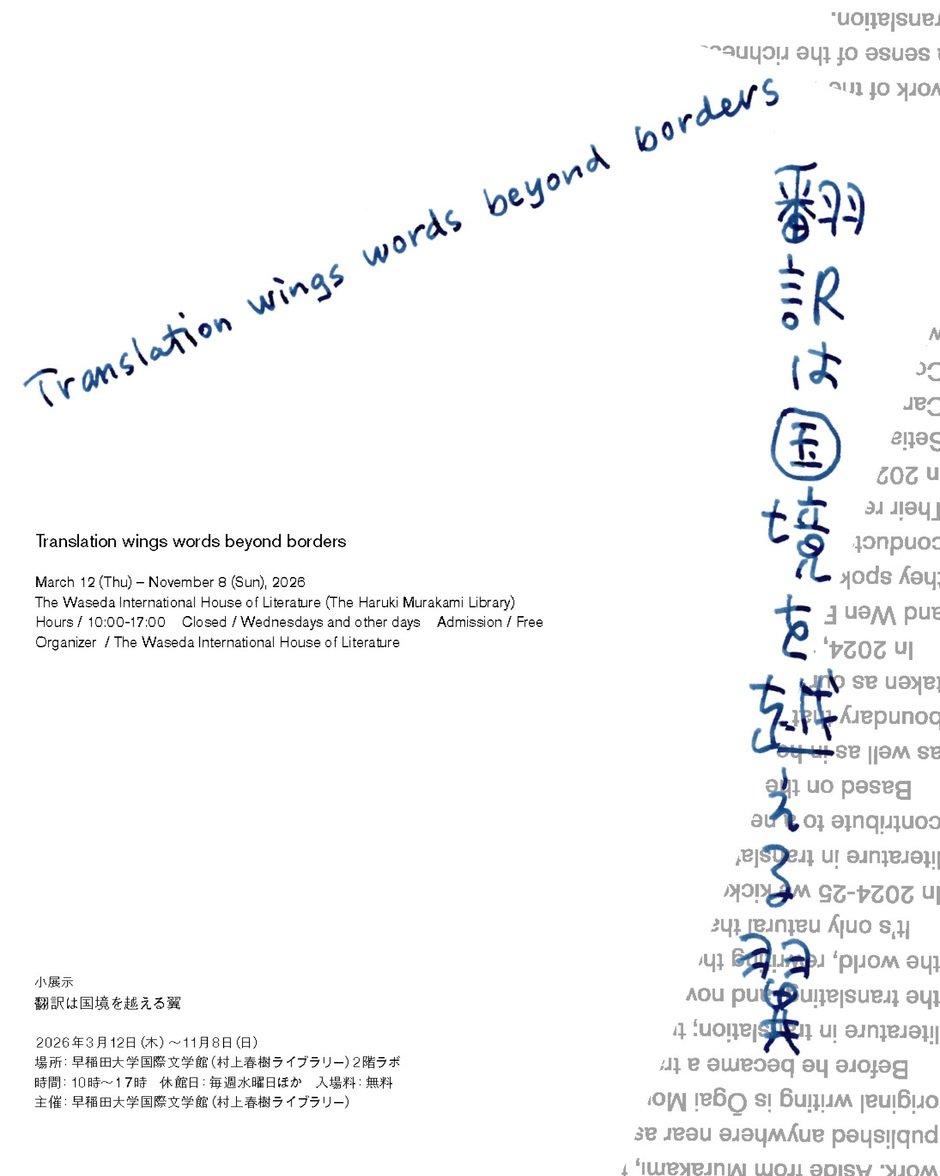 Translation wings words beyond borders
翻訳は国境を越える翼
Translation wings words beyond borders
March 12 (Thu) – November 8 (Sun), 2026
The Waseda International House of Literature (The Haruki Murakami Library)
Hours / 10:00-17:00 Closed / Wednesdays and other days Admission / Free
Organizer / The Waseda International House of Literature
小展示
翻訳は国境を越える翼
2026年3月12日(木)～11月8日(日)
場所：早稲田大学国際文学館(村上春樹ライブラリー)2階ラボ
時間：10時～17時 休館日：毎週水曜日ほか 入場料：無料
主催：早稲田大学国際文学館(村上春樹ライブラリー)
work. Aside from Murakami,
published anywhere near as
original writing is Ōgai Mo
Before he became a
literature in translation;
the translating and now
the world, rewriting
It's only natural tha
In 2024-25 we kick
literature in transla
contribute to a ne
Based on the
as well as in he
boundary that
taken as our
In 2024,
and Wen
they spok
conduct
Their re
In 202
Setia
Car
Co
work of the
sense of the richness
translation.